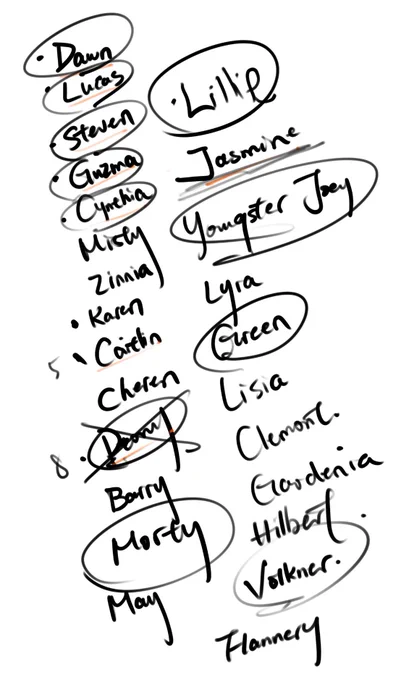 · Dawn
· Lucas
· Steven
· Guzma
· Cynthia
Misty
Zinnia
· Karen
5 · Caitlin
Cheren
8 ·
Barry
Morty
May
· Lillie
Jasmine
Youngster Joey
Lyra
Green
Lisia
Clemont.
Gardenia
Hilbert.
Volkner.
Flannery